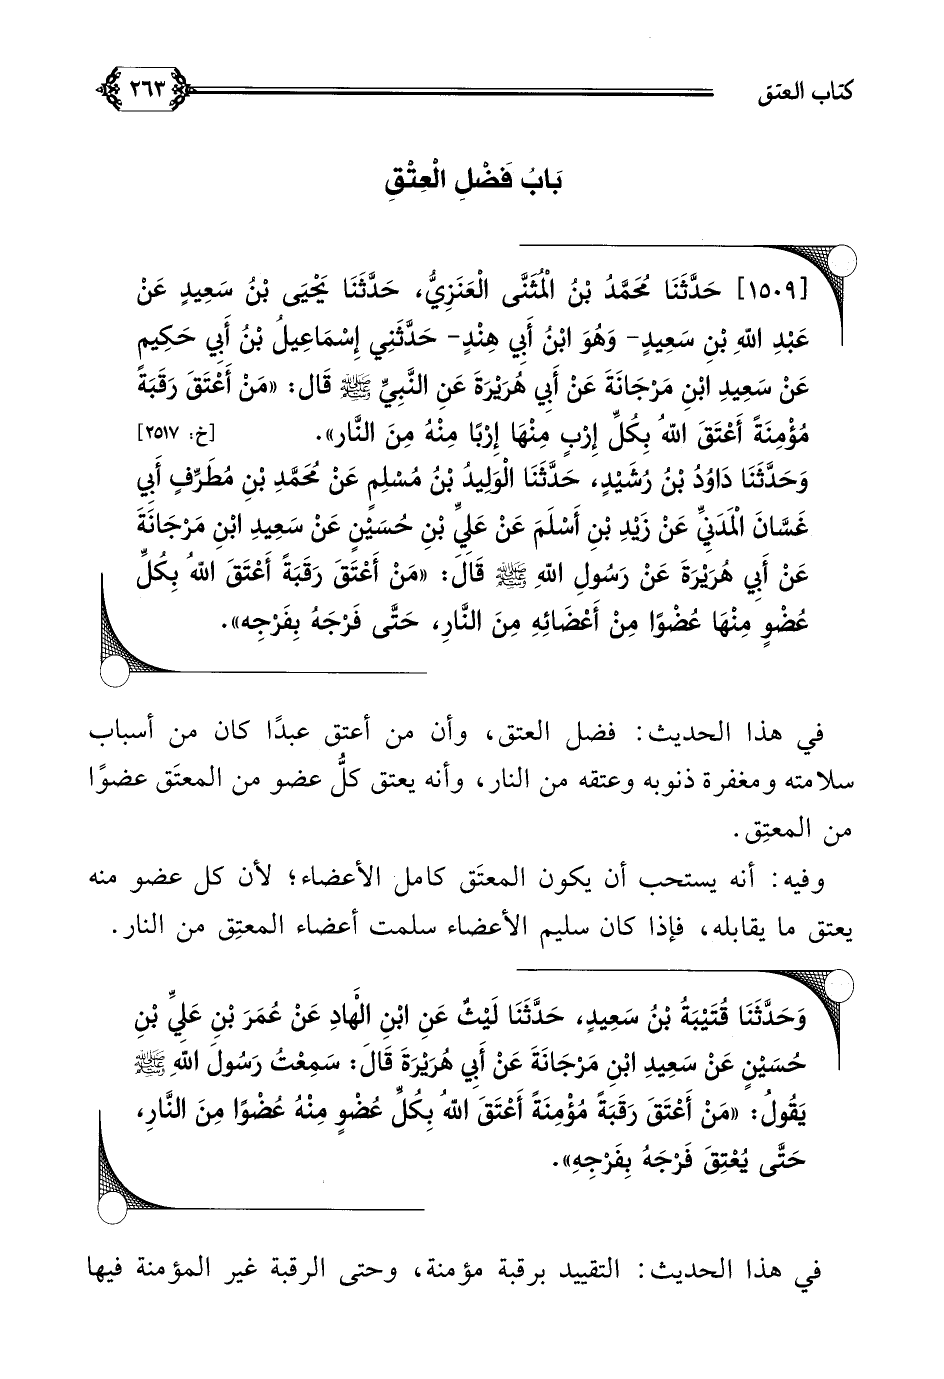 كتاب العتق
٢٦٣
بَابُ فَضْلِ الْعِتْقِ
[١٥٠٩] حَدَّثَنَا مُحَمَّدُ بْنُ الْمُثَنَّى الْعَنَزِيُّ، حَدَّثَنَا يَحْيَى بْنُ سَعِيدٍ عَنْ
عَبْدِ اللهِ بْنِ سَعِيدٍ- وَهُوَ ابْنُ أَبِي هِنْدٍ- حَدَّثَنِي إِسْمَاعِيلُ بْنُ أَبِي حَكِيمٍ
عَنْ سَعِيدِ ابْنِ مَرْجَانَةَ عَنْ أَبِي هُرَيْرَةَ عَنِ النَّبِيِّ ﷺ قَالَ: «مَنْ أَعْتَقَ رَقَبَةً
مُؤْمِنَةً أَعْتَقَ اللهُ بِكُلِّ إِرْبٍ مِنْهَا إِرْبًا مِنْهُ مِنَ النَّارِ». [خ: ٢٥١٧]
وَحَدَّثَنَا دَاوُدُ بْنُ رُشَيْدٍ، حَدَّثَنَا الْوَلِيدُ بْنُ مُسْلِمٍ عَنْ مُحَمَّدِ بْنِ مُطَرِّفٍ أَبِي
غَسَّانَ الْمَدَنِيِّ عَنْ زَيْدِ بْنِ أَسْلَمَ عَنْ عَلِيِّ بْنِ حُسَيْنٍ عَنْ سَعِيدِ ابْنِ مَرْجَانَةَ
عَنْ أَبِي هُرَيْرَةَ عَنْ رَسُولِ اللهِ ﷺ قَالَ: «مَنْ أَعْتَقَ رَقَبَةً أَعْتَقَ اللهُ بِكُلِّ
عُضْوٍ مِنْهَا عُضْوًا مِنْ أَعْضَائِهِ مِنَ النَّارِ، حَتَّى فَرْجَهُ بِفَرْجِهِ».
في هذا الحديث: فضل العتق، وأن من أعتق عبدًا كان من أسباب
سلامته ومغفرة ذنوبه وعتقه من النار، وأنه يعتق كلُّ عضو من المعتَق عضوًا
من المعتِق.
وفيه: أنه يستحب أن يكون المعتَق كامل الأعضاء؛ لأن كل عضو منه
يعتق ما يقابله، فإذا كان سليم الأعضاء سلمت أعضاء المعتِق من النار.
وَحَدَّثَنَا قُتَيْبَةُ بْنُ سَعِيدٍ، حَدَّثَنَا لَيْثٌ عَنِ ابْنِ الْهَادِ عَنْ عُمَرَ بْنِ عَلِيِّ بْنِ
حُسَيْنٍ عَنْ سَعِيدِ ابْنِ مَرْجَانَةَ عَنْ أَبِي هُرَيْرَةَ قَالَ: سَمِعْتُ رَسُولَ اللهِ ﷺ
يَقُولُ: «مَنْ أَعْتَقَ رَقَبَةً مُؤْمِنَةً أَعْتَقَ اللهُ بِكُلِّ عُضْوٍ مِنْهُ عُضْوًا مِنَ النَّارِ،
حَتَّى يُعْتِقَ فَرْجَهُ بِفَرْجِهِ».
في هذا الحديث: التقييد برقبة مؤمنة، وحتى الرقبة غير المؤمنة فيها